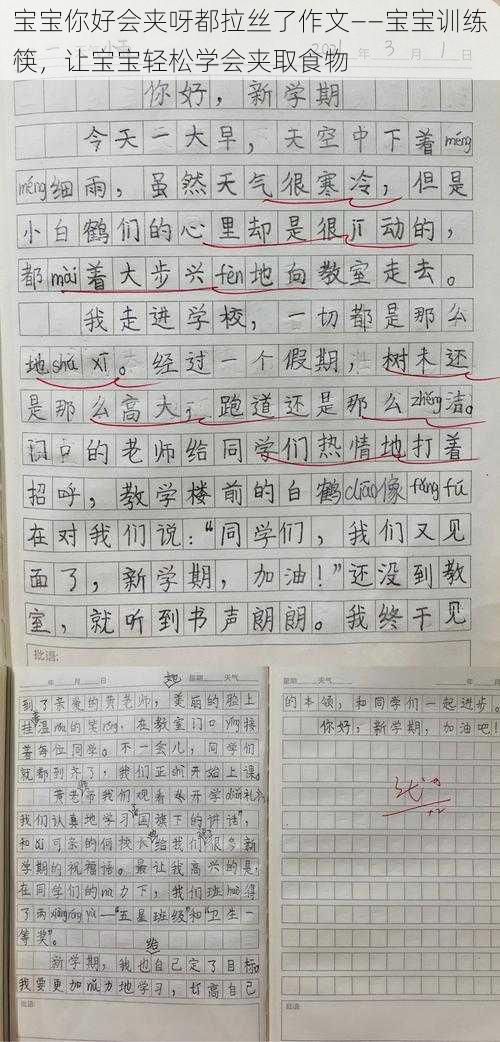 宝宝你好会夹呀都拉丝了作文——宝宝训练
筷，让宝宝轻松学会夹取食物
年 3 月 1 日
你好，新学期
今天一大早，天空中下着méng
méng细雨，虽然天气很寒冷，但是
小白鹤们的心里却是很jī动的，
都mài着大步兴fèn地向教室走去。
我走进学校，一切都是那么
地shú xī。经过一个假期，树木还
是那么高大，跑道还是那么zhěng洁。
门口的老师给同学们热情地打着
招呼，教学楼前的白鹤diāo像fǎng fú
在对我们说：“同学们，我们又见
面了，新学期，加油！”还没到教
室，就听到书声朗朗。我终于见
批语：
年 月 日 星期 天气
到了亲爱的黄老师，美丽的脸上
挂温nuǎn的笑róng，在教室门口yíng接
着每位同学。不一会儿，同学们
就都到齐了，我们正shì开始上课。
黄老师我们观看开学diǎn礼，
我们认真地学习“国旗下的讲话”，
和ǎi可亲的何校长给我们很多新
学期的祝福语。最让我高兴的是，
在同学们的nǔ力下，我们班huò得
了两xiàng róng yù—“五星班级”和“卫生一
等奖”。
新学期，我也自己定了目标，
给
我要更加nǔ力地学习，打高自己
批语：
星期 天气 年 月
的本领，和同学们一起进步。
你好，新学期，加油吧！
批语：